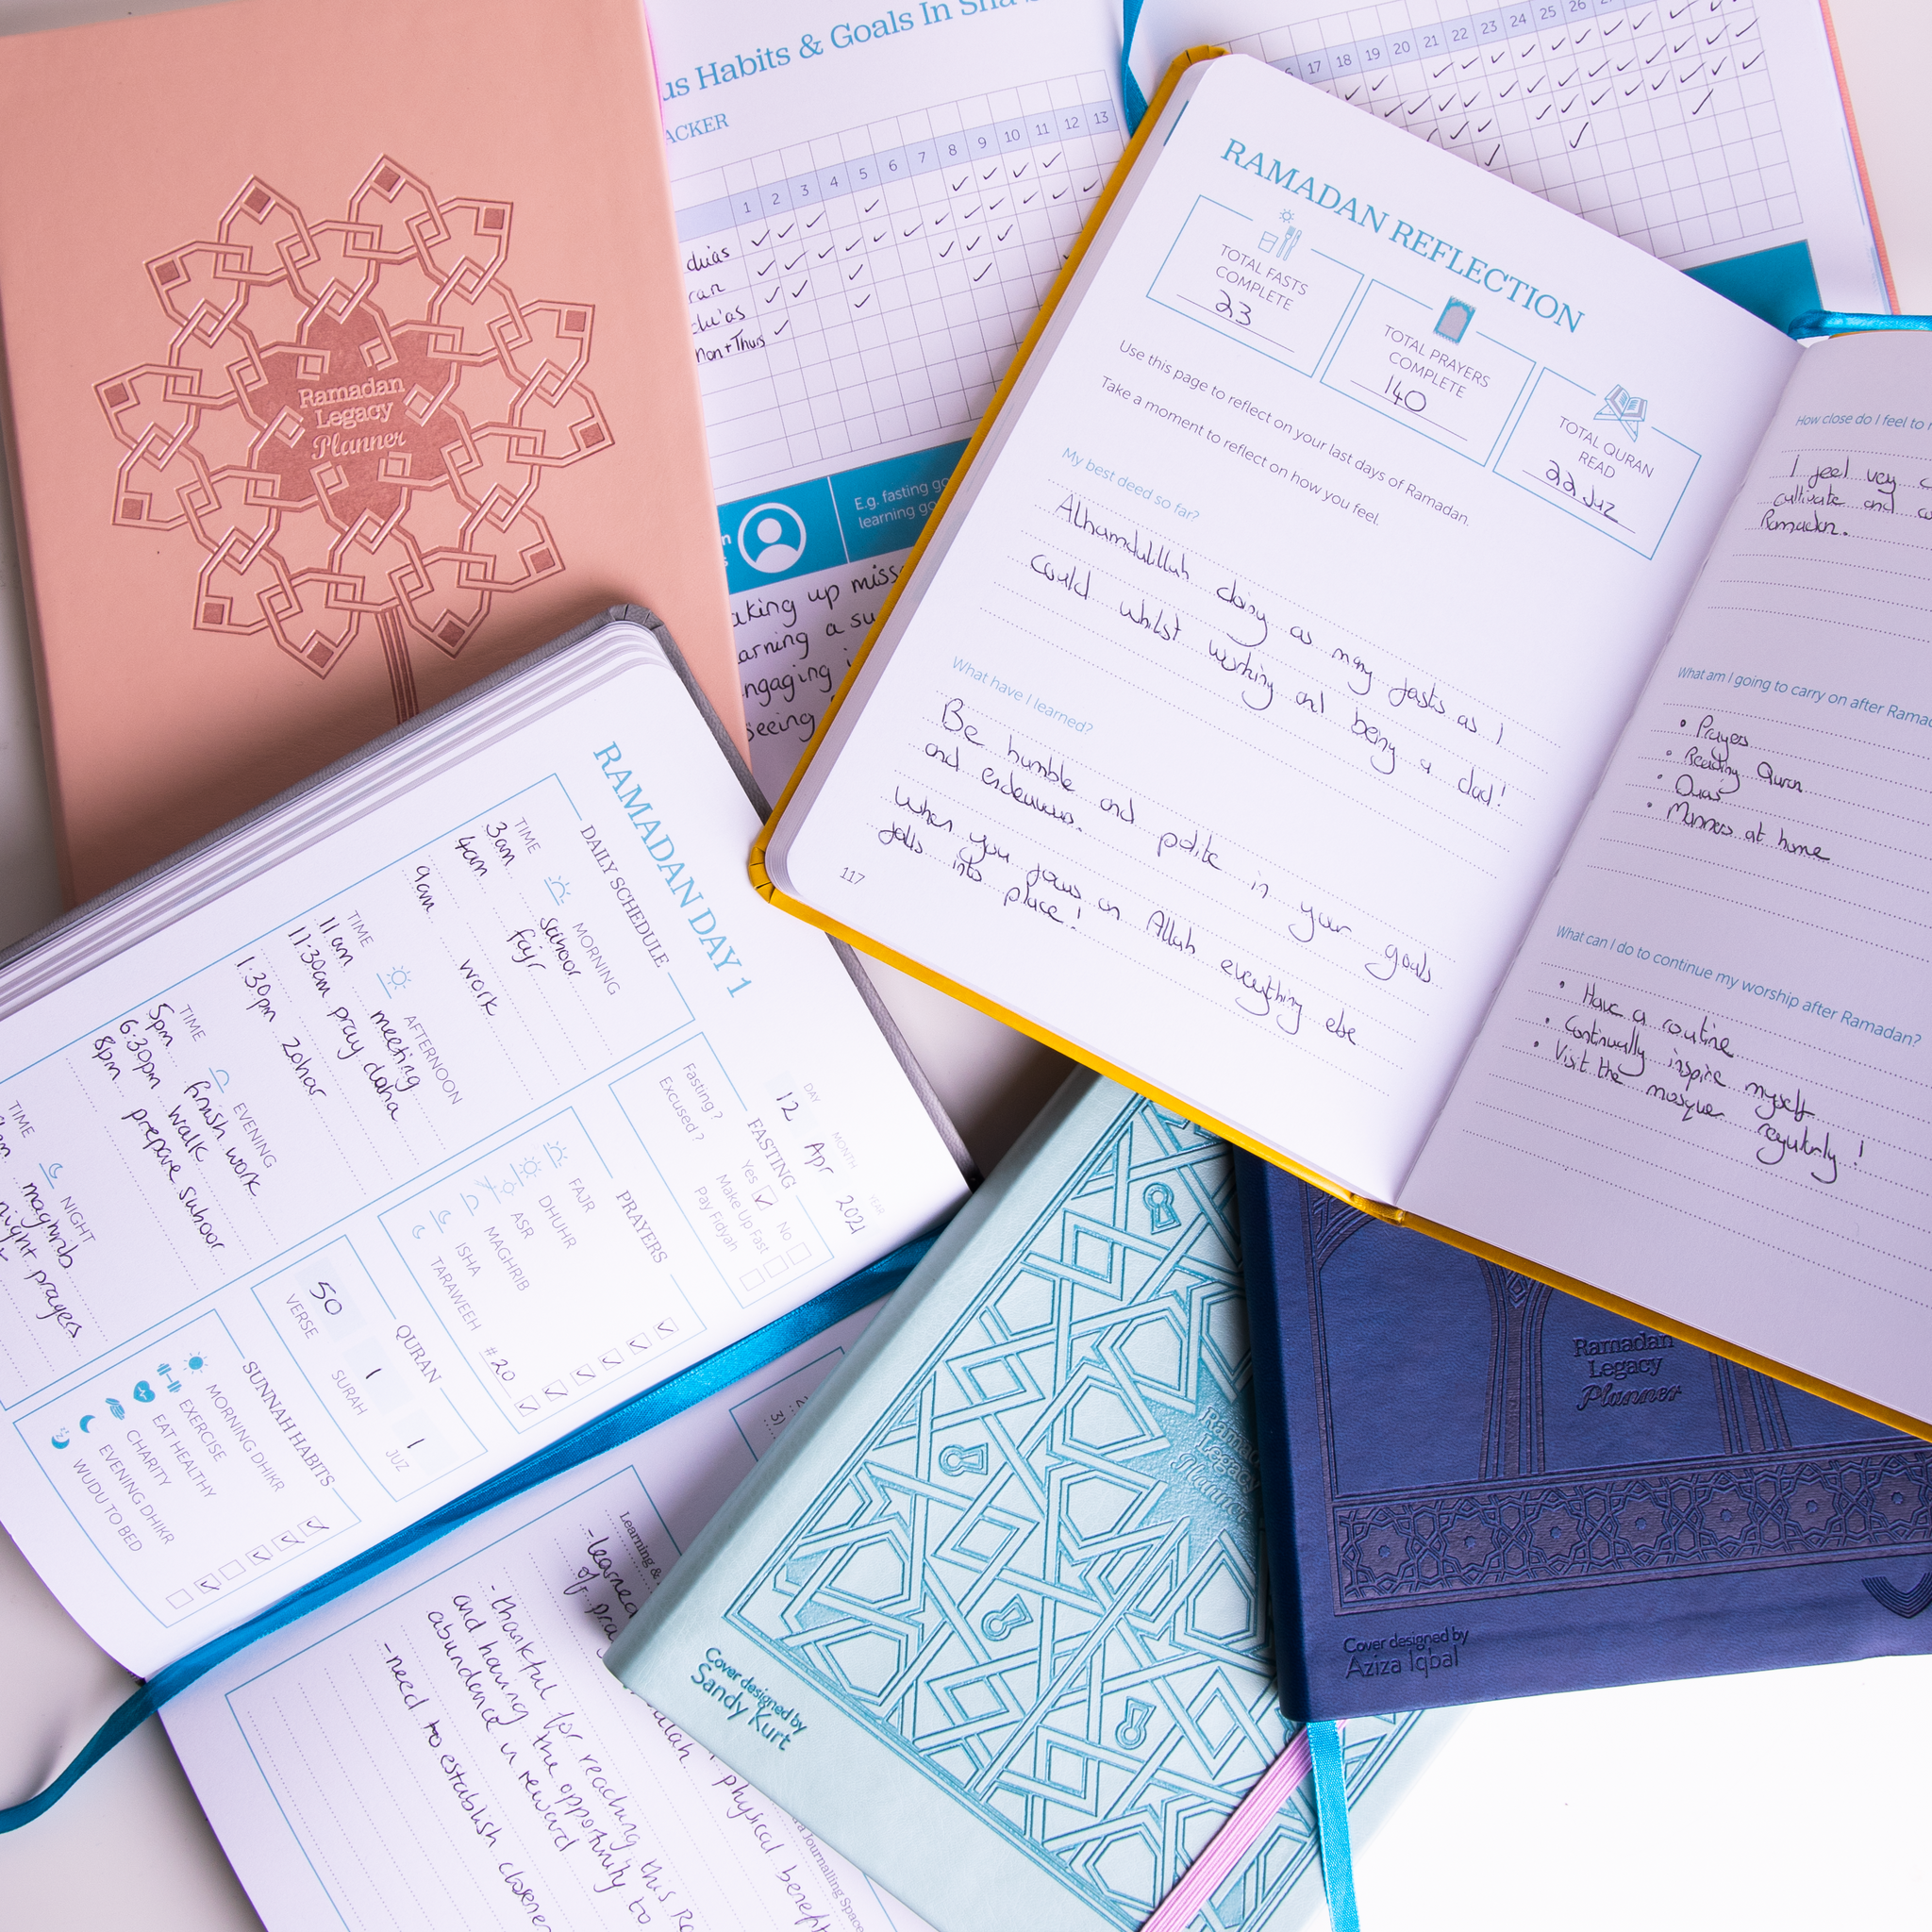 Ramadan
Legacy
Planner
us Habits & Goals In Sha
ACKER
1 2 3 4 5 6 7 8 9 10 11 12 13
17 18 19 20 21 22 23 24 25 26
mon + Thurs
E.g. fasting go
learning go
aking up miss
arning a su
ngaging
seeing
RAMADAN REFLECTION
TOTAL FASTS
COMPLETE
23
TOTAL PRAYERS
COMPLETE
140
TOTAL QURAN
READ
22 Juz
Use this page to reflect on your last days of Ramadan.
Take a moment to reflect on how you feel.
My best deed so far?
Alhamdulillah doing as many fasts as I
could whilst working and being a dad!
What have I learned?
Be humble and polite in your goals
and endeavours.
When you focus on Allah everything else
falls into place!
117
How close do I feel to
I feel very
cultivate and
Ramadan.
What am I going to carry on after Ramad
• Prayers
• Reading Quran
• Duas
• Manners at home
What can I do to continue my worship after Ramadan?
• Have a routine
• Continually inspire myself
• Visit the mosque regularly!
RAMADAN DAY 1
DAY MONTH YEAR
12 Apr 2021
DAILY SCHEDULE
TIME MORNING
3am suhoor
4am fajr
9am work
TIME AFTERNOON
11am meeting
11:30am pray duha
1:30pm zohar
TIME EVENING
5pm finish work
6:30pm walk
8pm prepare suhoor
TIME NIGHT
maghrib
night prayers
FASTING
Fasting? Yes No
Excused? Make Up Fast
Pay Fidyah
PRAYERS
FAJR
DHUHR
ASR
MAGHRIB
ISHA
TARAWEEH #20
QURAN
50 1 1
VERSE SURAH JUZ
SUNNAH HABITS
MORNING DHIKR
EXERCISE
EAT HEALTHY
CHARITY
EVENING DHIKR
WUDU TO BED
3)
Learning &
-learned
of
-thankful for reaching this
and having the opportunity to
abundance in reward
-need to establish
physical
Journalling Space
Ramad
Legacy
Planner
Cover designed by
Sandy Kurt
Ramadan
Legacy
Planner
Cover designed by
Aziza Iqbal